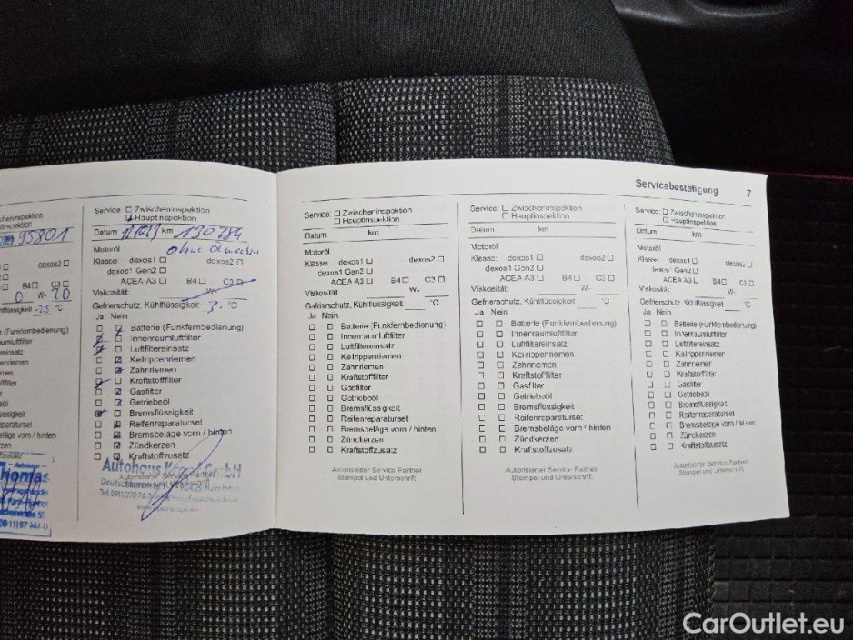 Servicebestätigung 7
95801
dexos2 ☐
B4☐ C3☐
0 W- 20
-25 °C
Service: ☐ Zwischeninspektion
☑ Hauptinspektion
Datum km 130784
Motoröl ohne
Klasse: dexos1 ☐ dexos2 ☐
dexos1 Gen2 ☐
ACEA A3 ☐ B4☐ C3☐
Viskosität: W-
Gefrierschutz, Kühlflüssigkeit °C
Ja Nein
Batterie (Funkfernbedienung)
Innenraumluftfilter
Luftfiltereinsatz
Keilrippenriemen
Zahnriemen
Kraftstofffilter
Gasfilter
Getriebeöl
Bremsflüssigkeit
Reifenreparaturset
Bremsbeläge vorn / hinten
Zündkerzen
Kraftstoffzusatz
Service: ☐ Zwischeninspektion
☐ Hauptinspektion
Datum km
Motoröl
Klasse: dexos1 ☐ dexos2 ☐
dexos1 Gen2 ☐
ACEA A3 ☐ B4☐ C3☐
Viskosität: W-
Gefrierschutz, Kühlflüssigkeit °C
Ja Nein
☐ ☐ Batterie (Funkfernbedienung)
☐ ☐ Innenraumluftfilter
☐ ☐ Luftfiltereinsatz
☐ ☐ Keilrippenriemen
☐ ☐ Zahnriemen
☐ ☐ Kraftstofffilter
☐ ☐ Gasfilter
☐ ☐ Getriebeöl
☐ ☐ Bremsflüssigkeit
☐ ☐ Reifenreparaturset
☐ ☐ Bremsbeläge vorn / hinten
☐ ☐ Zündkerzen
☐ ☐ Kraftstoffzusatz
Autorisierter Service Partner
Stempel und Unterschrift
Service: ☐ Zwischeninspektion
☐ Hauptinspektion
Datum km
Motoröl
Klasse: dexos1 ☐ dexos2 ☐
dexos1 Gen2 ☐
ACEA A3 ☐ B4☐ C3☐
Viskosität: W-
Gefrierschutz, Kühlflüssigkeit °C
Ja Nein
☐ ☐ Batterie (Funkfernbedienung)
☐ ☐ Innenraumluftfilter
☐ ☐ Luftfiltereinsatz
☐ ☐ Keilrippenriemen
☐ ☐ Zahnriemen
☐ ☐ Kraftstofffilter
☐ ☐ Gasfilter
☐ ☐ Getriebeöl
☐ ☐ Bremsflüssigkeit
☐ ☐ Reifenreparaturset
☐ ☐ Bremsbeläge vorn / hinten
☐ ☐ Zündkerzen
☐ ☐ Kraftstoffzusatz
Autorisierter Service Partner
Stempel und Unterschrift
Service: ☐ Zwischeninspektion
☐ Hauptinspektion
Datum km
Motoröl
Klasse: dexos1 ☐ dexos2 ☐
dexos1 Gen2 ☐
ACEA A3 ☐ B4☐ C3☐
Viskosität: W-
Gefrierschutz, Kühlflüssigkeit °C
Ja Nein
☐ ☐ Batterie (Funkfernbedienung)
☐ ☐ Innenraumluftfilter
☐ ☐ Luftfiltereinsatz
☐ ☐ Keilrippenriemen
☐ ☐ Zahnriemen
☐ ☐ Kraftstofffilter
☐ ☐ Gasfilter
☐ ☐ Getriebeöl
☐ ☐ Bremsflüssigkeit
☐ ☐ Reifenreparaturset
☐ ☐ Bremsbeläge vorn / hinten
☐ ☐ Zündkerzen
☐ ☐ Kraftstoffzusatz
Autorisierter Service Partner
Stempel und Unterschrift
Thomas
Autohaus GmbH
CarOutlet.eu